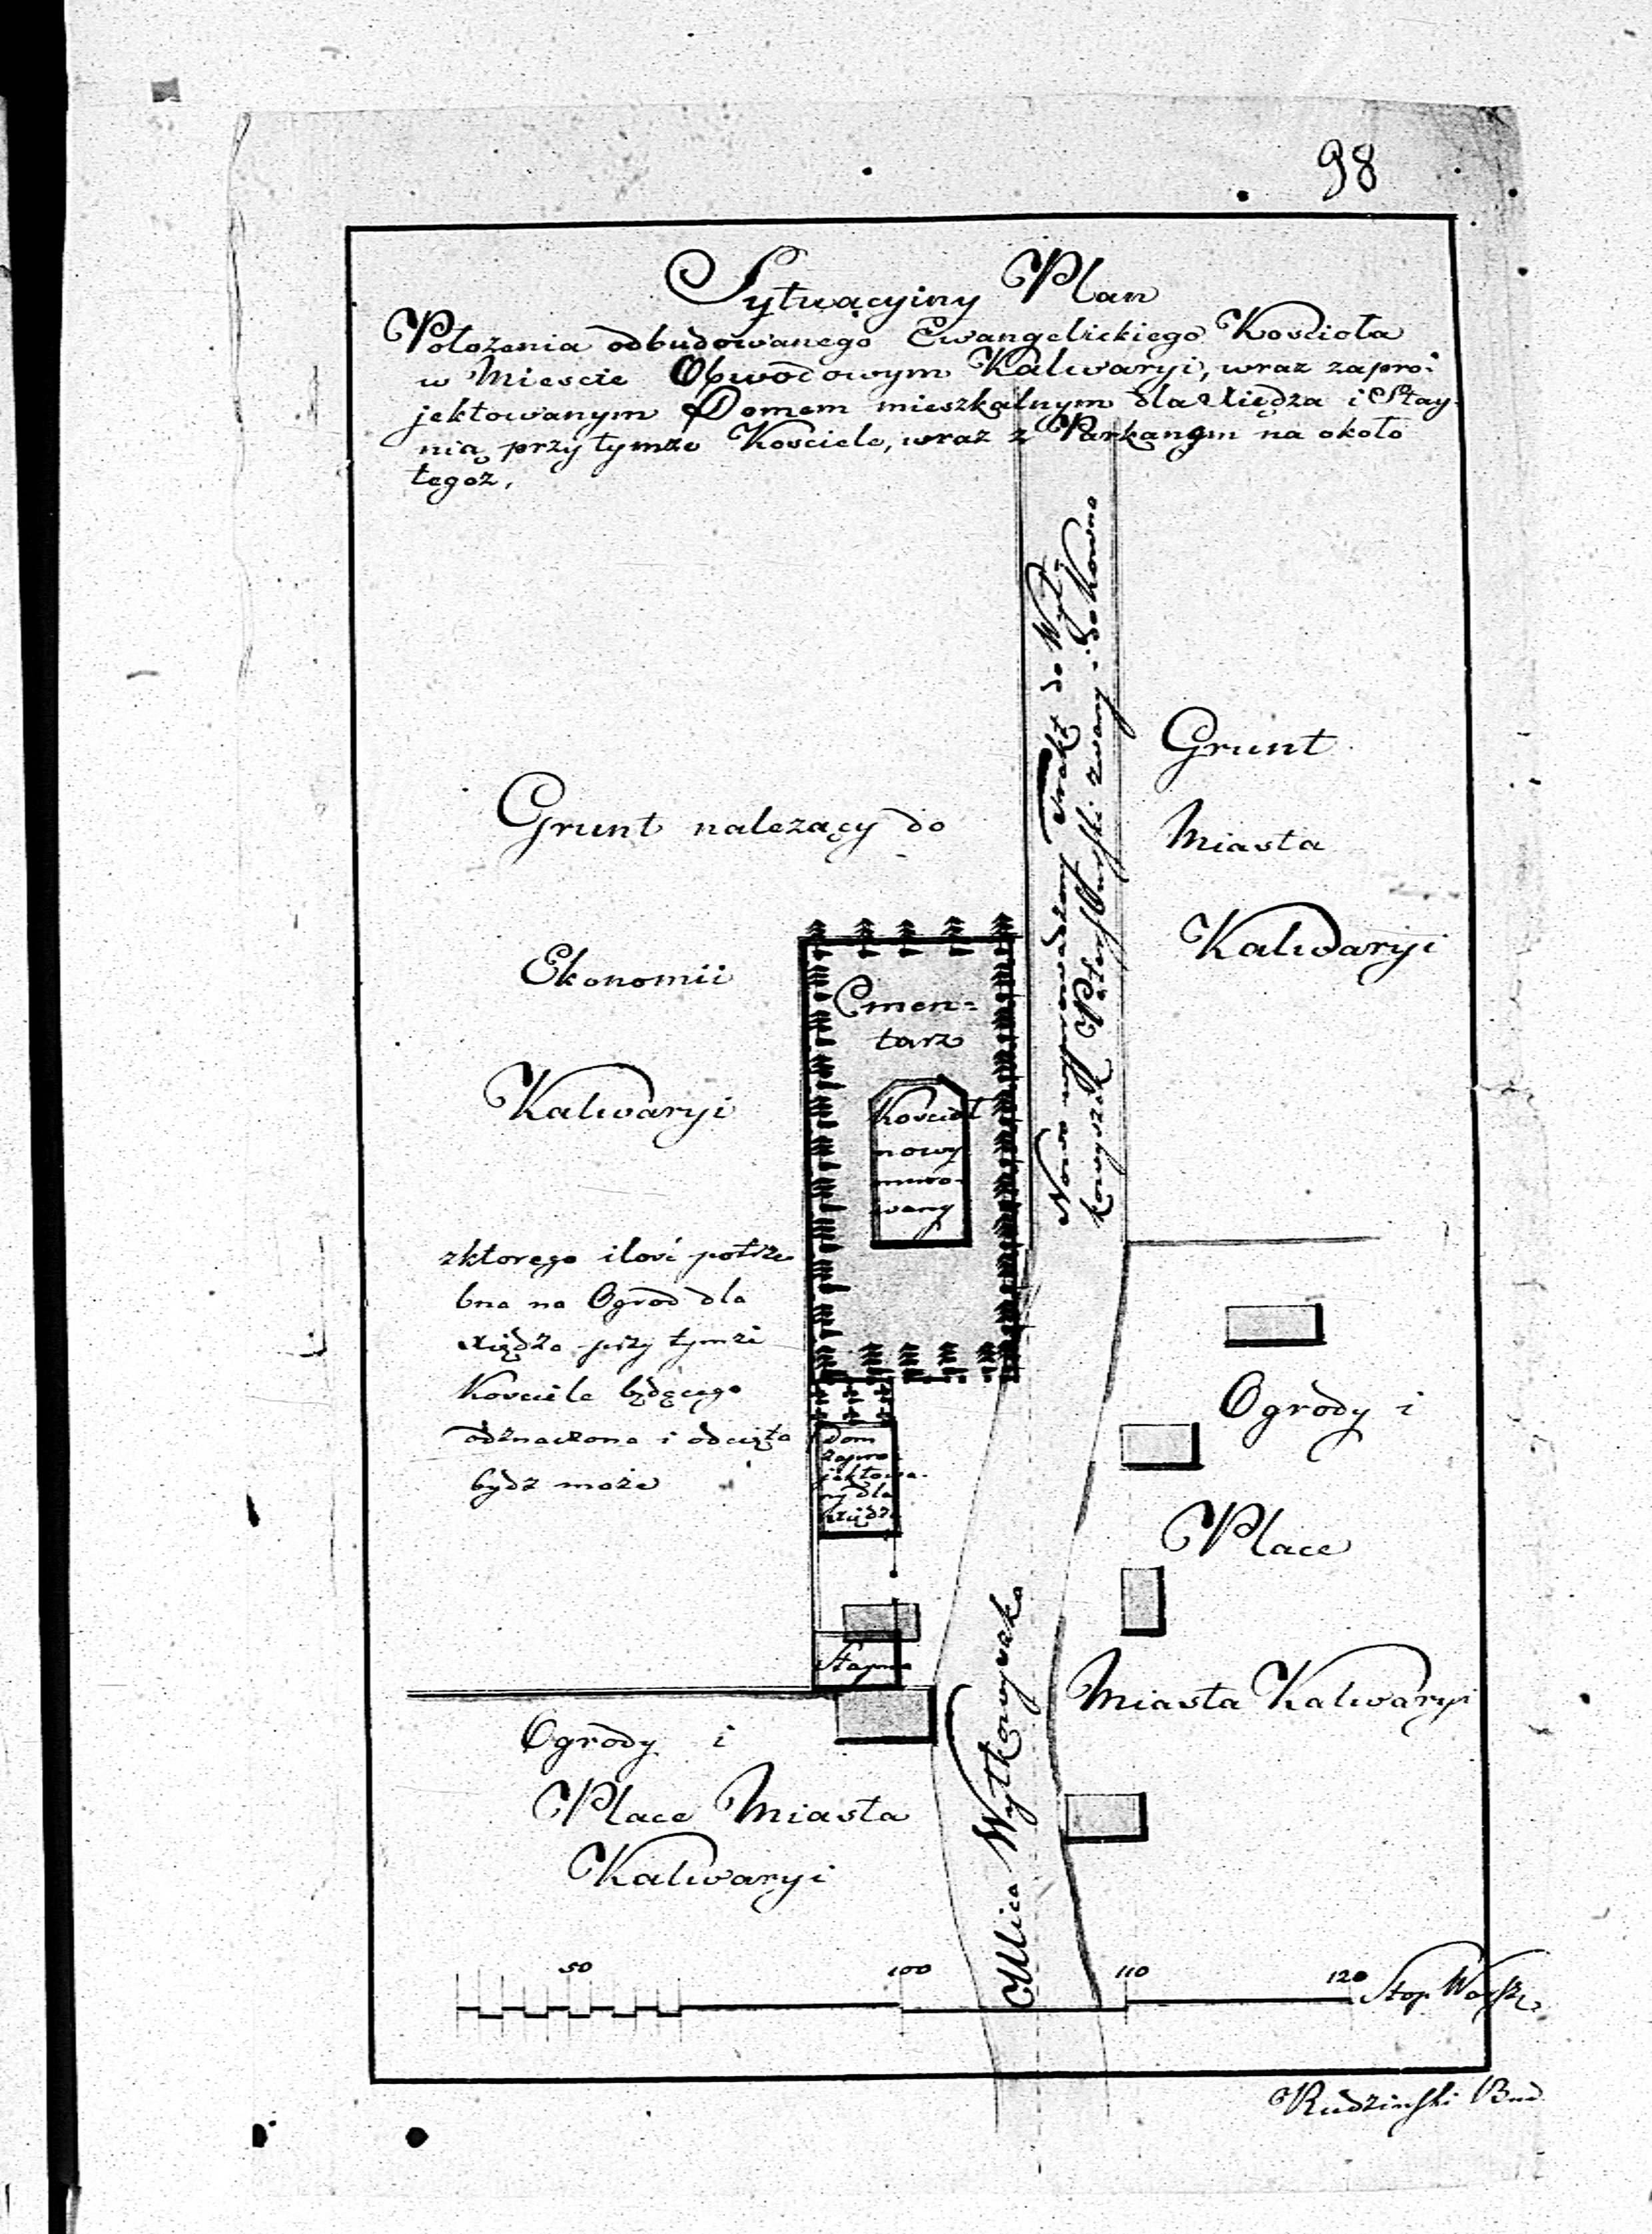 98
Sytuacyiny Plan
Położenia odbudowanego Ewangelickiego Kościoła
w Mieście Obwodowym Kalwaryi, wraz zapro-
jektowanym Domem mieszkalnym dla Xiędza i Stay-
nią przy tymże Kościele, wraz z Parkanem na około
tegoż.
Nowo wyprowadzony Trakt do Wył-
kowyszek Petersburski zwany - do Kowna
Grunt
Miasta
Kalwaryi
Grunt należący do
Ekonomii
Kalwaryi
zktorego ilość potrze
bna na Ogrod dla
xiędza przy tymże
Kościele będącego
odznaczona i odcięta
bydz może
Cmen-
tarz
Kościoł
nowy
muro-
wany
Dom
zapro
jektowa-
ny dla
Xiędza
Stajnia
Ogrody i
Place
Miasta Kalwaryi
Ogrody i
Place Miasta
Kalwaryi
Ulica Wyłkowyska
50 100 110 120 Stop Warsz.
Rudzinski Bud